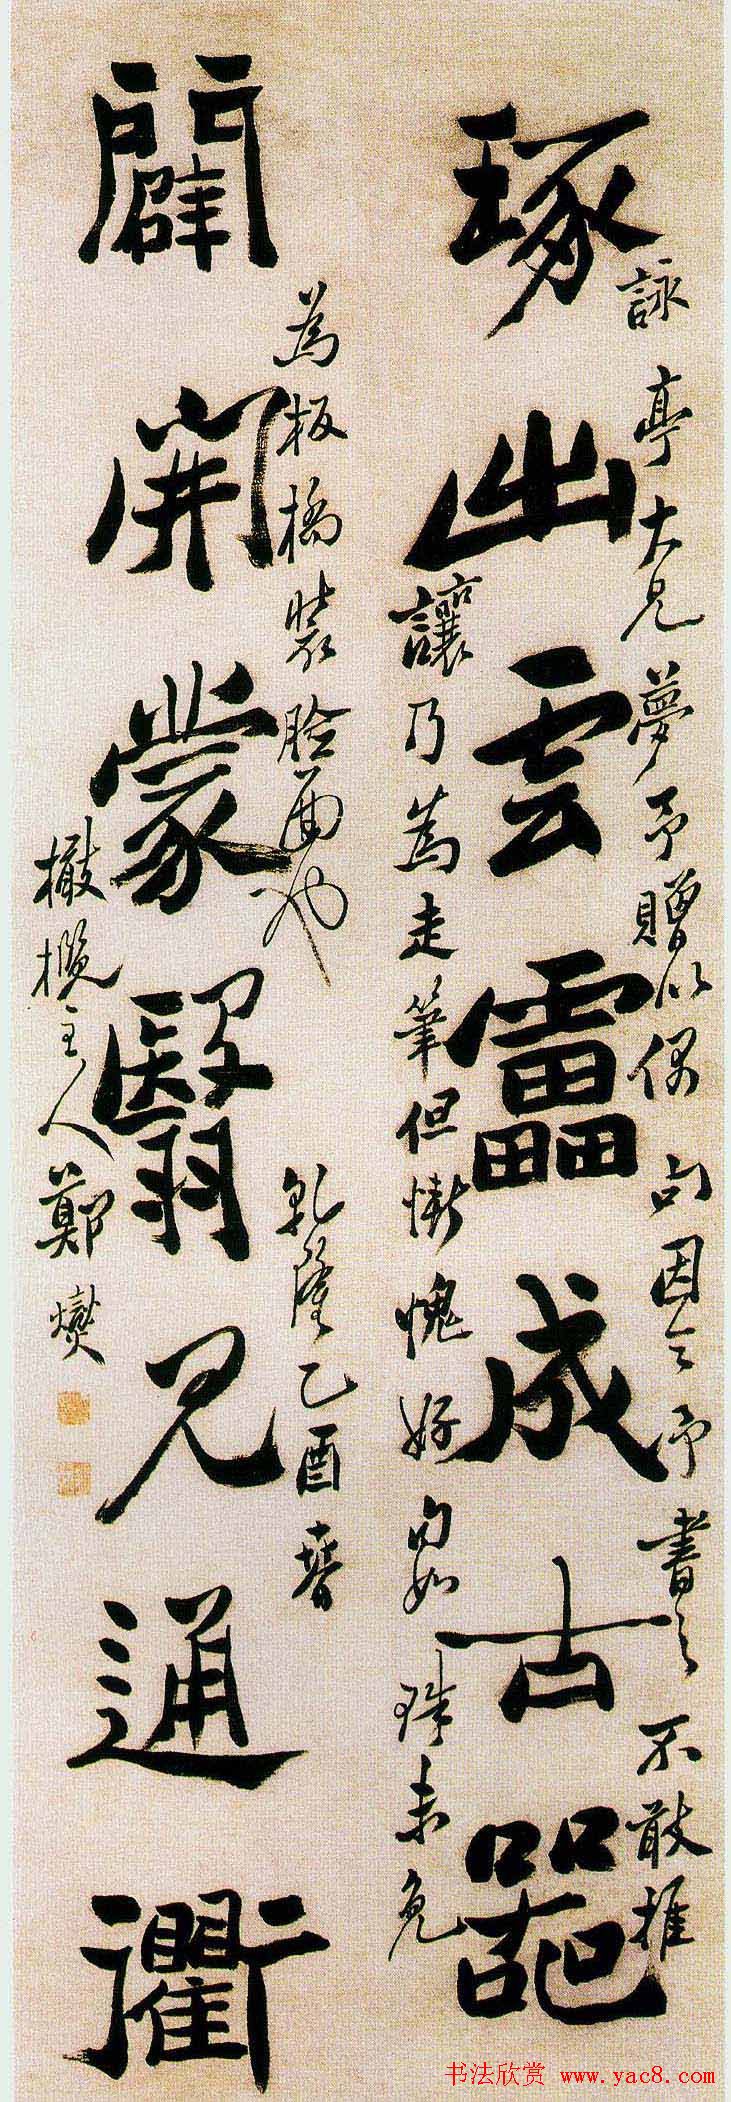 琢出雲雷成古器
詠亭大兄夢予贈以偶句因令予書之不敢推
讓乃為走筆但慚愧好句如珠未免
闢開蒙翳見通衢
為板橋裝臉面也
乾隆乙酉春
橄欖主人鄭燮
书法欣赏 www.yac8.com